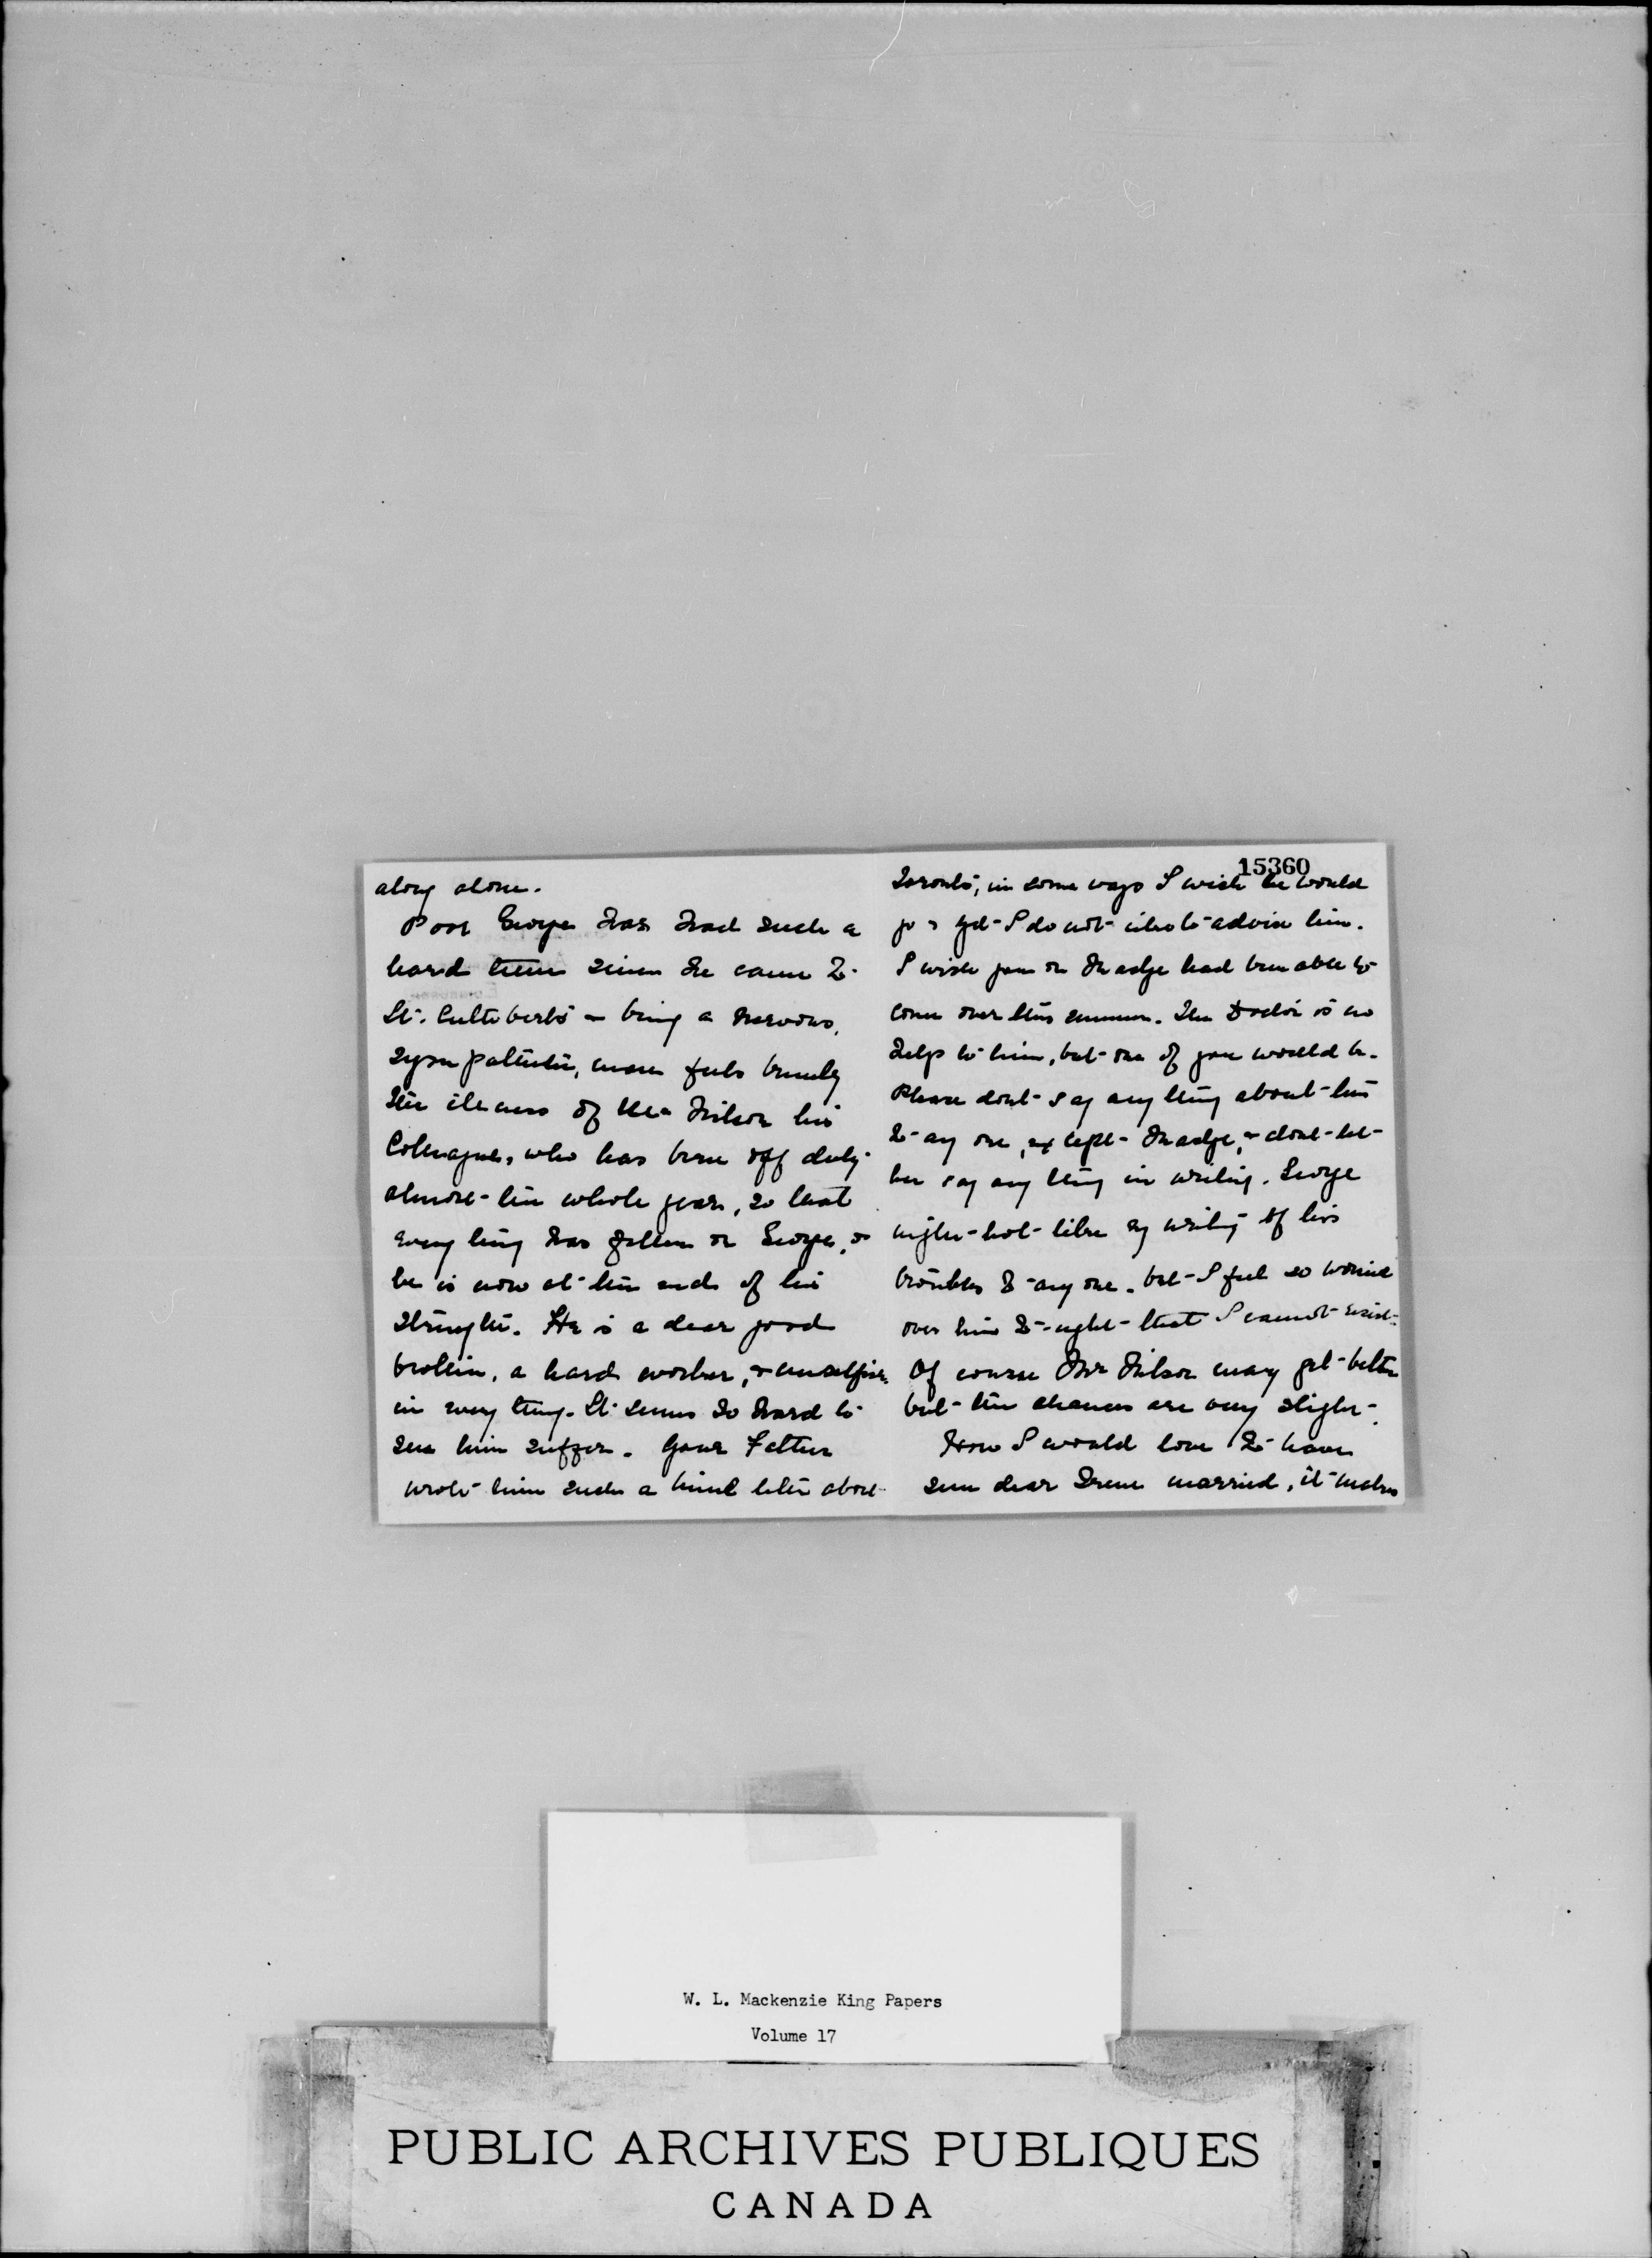 along alone.
Poor George has had such a
hard time since he came to
St. Cuthberts - being a nervous,
sympathetic, man feels keenly
the illness of Mr Filson his
Colleague, who has been off duty
almost the whole year, so that
every thing has fallen on George, &
he is now at the end of his
strength. He is a dear good
brother, a hard worker, & unselfish
in every thing. It seems so hard to
see him suffer. Your Father
wrote him such a kind letter about
15360
Toronto, in some ways I wish he would
go & yet I do not like to advise him.
I wish you or Madge had been able to
come over this summer. The Doctor is no
help to him, but one of you would be.
Please dont say any thing about this
to any one, except Madge, & dont let
her say any thing in writing. George
might not like my writing of his
troubles to any one. but I feel so worried
over him to-night that I cannot resist.
Of course Mr Filson may get better
but the chances are very slight.
How I would love to have
seen dear Irene married, it makes
W. L. Mackenzie King Papers
Volume 17
PUBLIC ARCHIVES PUBLIQUES
CANADA